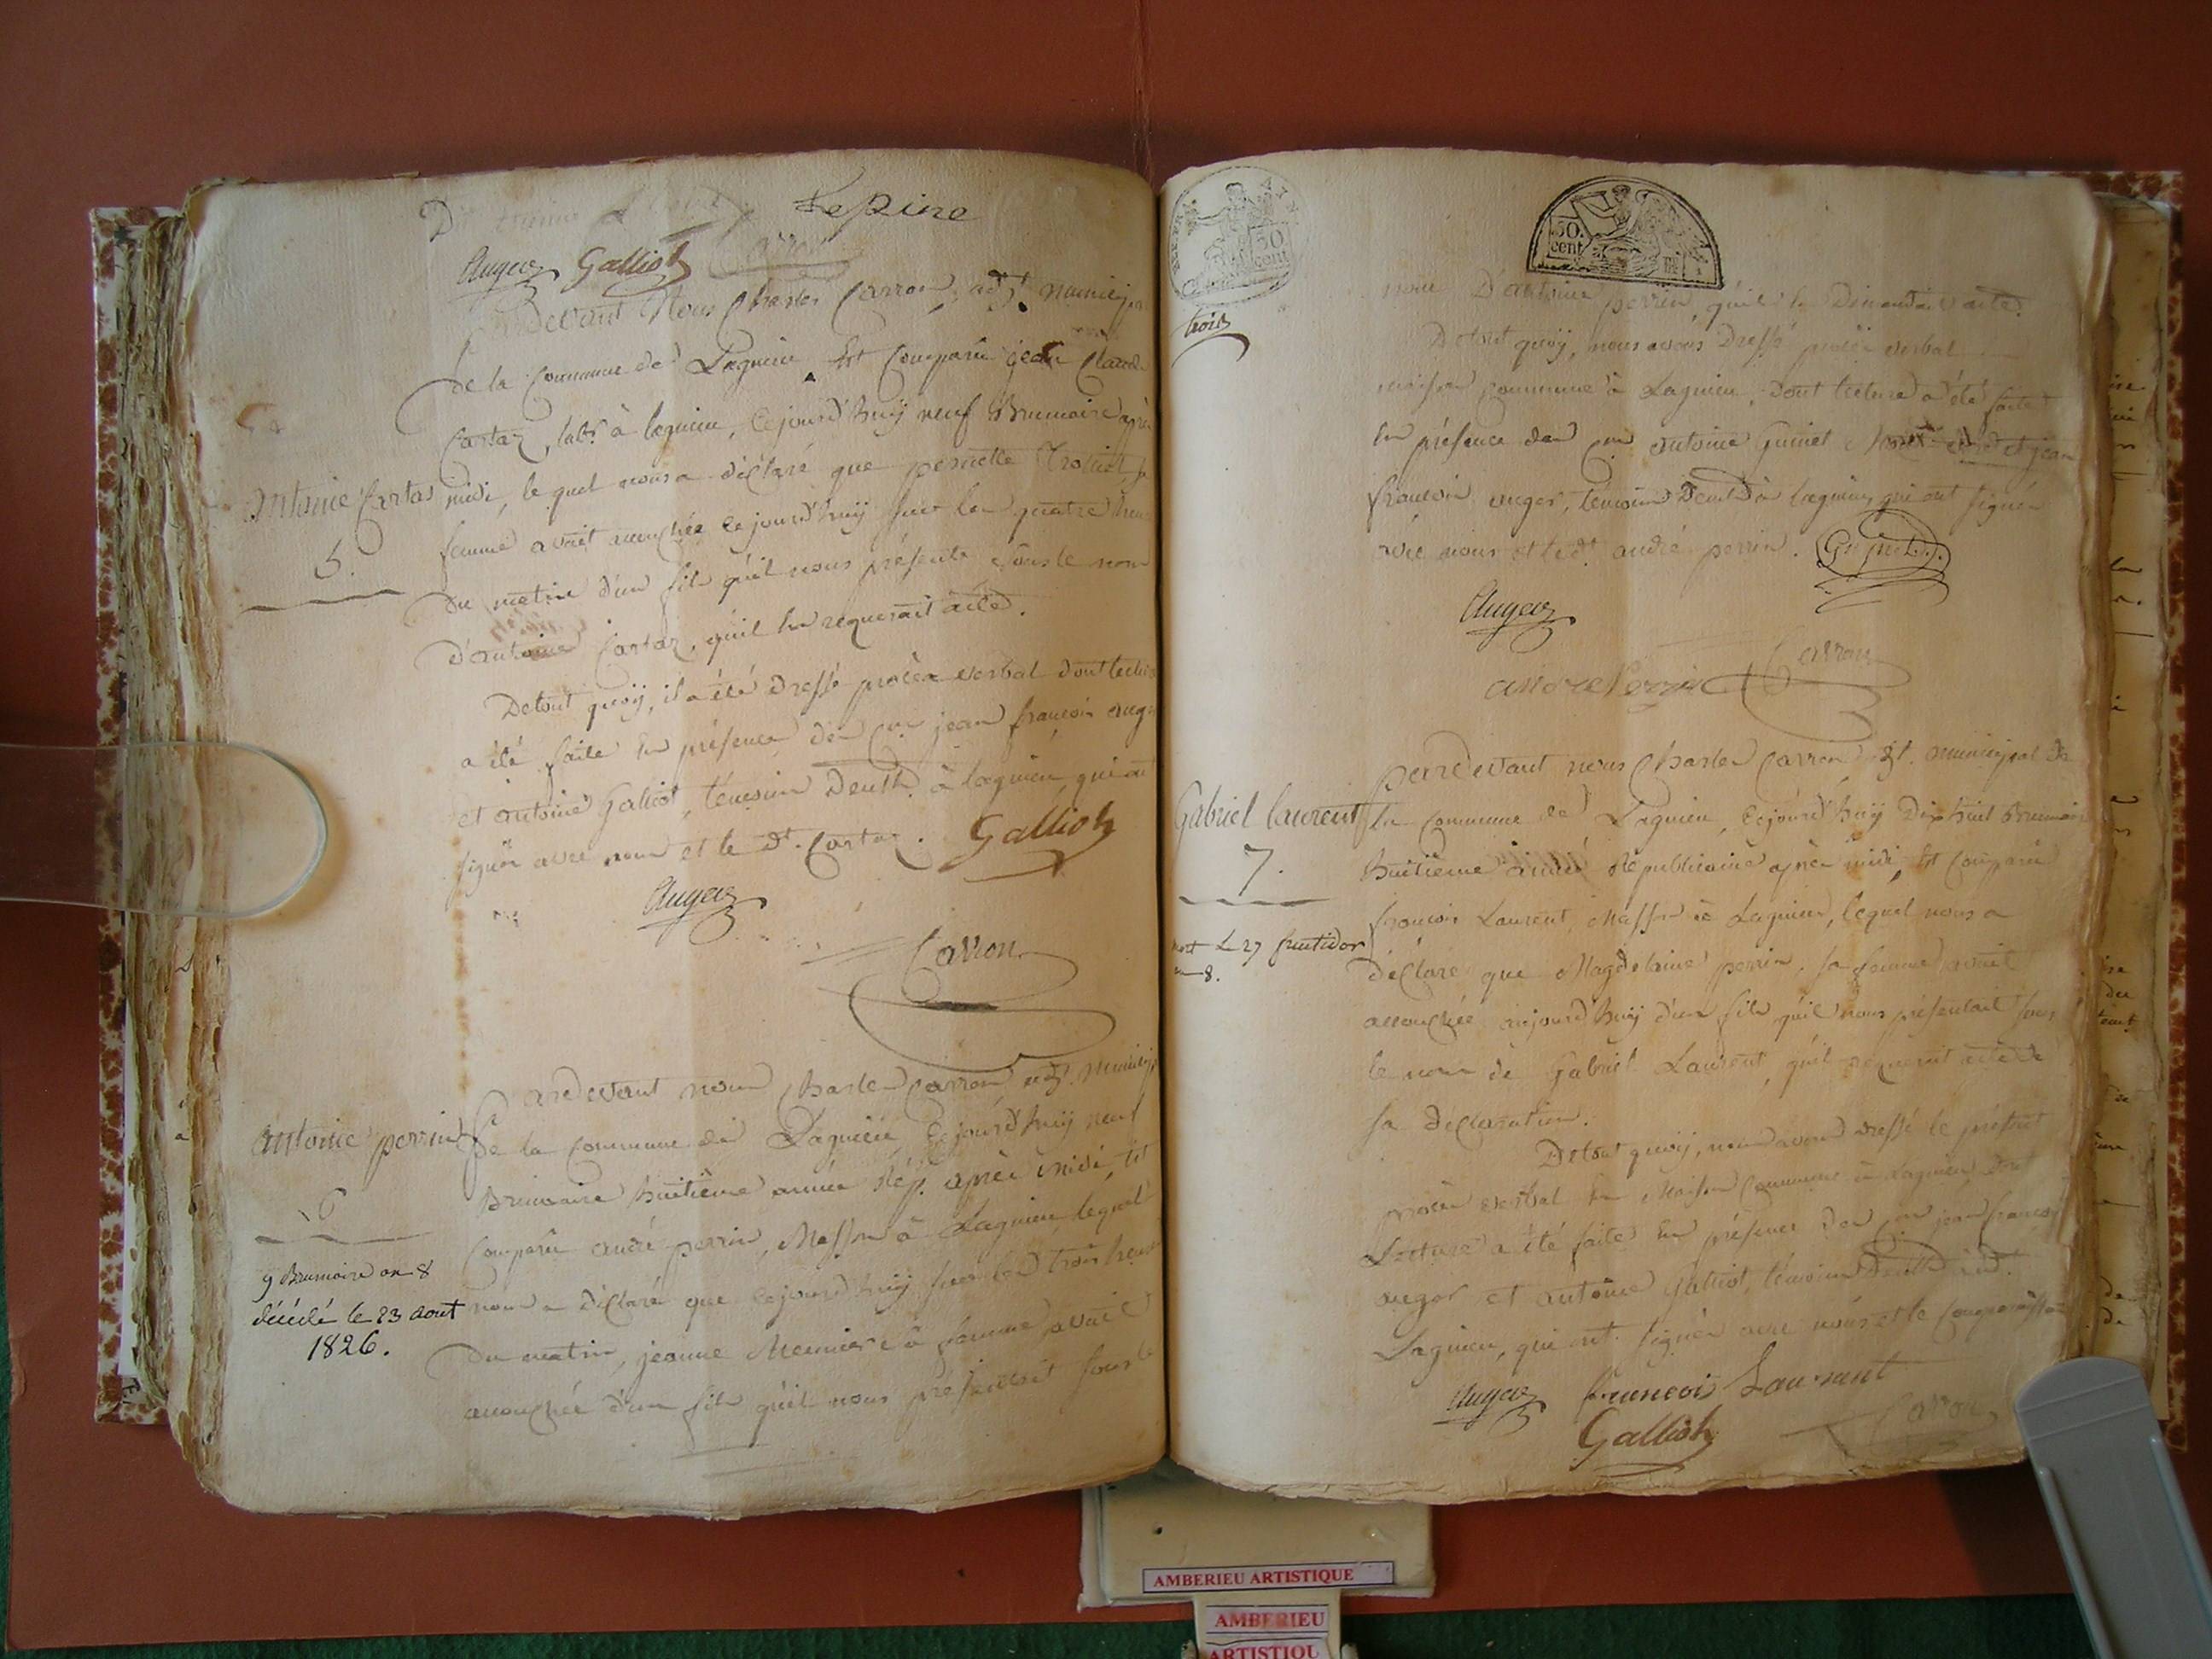 Lepine
Auger Galliot Carron
Pardevant Nous Charles Carron, adjt. municip
De la Commune de Lagnieu Est Comparu jean Claude
Cartaz, labr. à lagnieu, Cejourd'huy neuf Brumaire après
midi, le quel nous a déclaré que pernette Trolliet, sa
femme avoit accouchée cejourd'huy sur les quatre heu
du matin d'un fils qu'il nous présente sous le nom
D'antoine Cartaz, qu'il en requerait acte.
De tout quoy, il a été Dressé procès verbal Dont lecture
a été faite En présence des Cns jean françois auger
et antoine Galliot, témoins Deuth. à lagnieu, qui ont
signés avec nous et le dt. Cartaz.
Galliot
Auger
Carron
Antoine Cartas
5.
Pardevant nous Charles Carron, adjt. Municip
De la Commune de Lagnieu, Cejourd'huy neuf
Brumaire huitième année Rép. après midi, Est
Comparu andré perrin, Masson à Lagnieu, lequel
nous a Déclaré que Cejourd'huy sur les trois heures
Du matin, jeanne Meunier sa femme avait
accouchée d'un fils qu'il nous présentoit sous le
Antoine perrin
6
9 Brumaire an 8
décédé le 23 aout
1826.
50
cent
trois
50.
cent
nom D'antoine perrin, qu'il en Demandait acte.
De tout quoy, nous avons Dressé procès verbal
maison commune à Lagnieu, Dont lecture a été faite
En présence des Cns antoine Guinet et jean
françois auger, témoins Deuth à lagnieu, qui ont signés
avec nous et le dt. andré perrin.
Auger
andre Perrin Carron
pardevant nous Charles Carron adjt. municipal de
la Commune de Lagnieu, Cejourd'huy Dix huit Brumaire
huitième année Républicaine après midi, Est Comparu
françois Laurent, Masson à Lagnieu, lequel nous a
déclaré que Magdelaine perrin, sa femme avoit
accouchée aujourd'huy d'un fils qu'il nous présentait sous
le nom de Gabriel Laurent, qu'il requerait acte de
sa déclaration.
De tout quoy, nous avons dressé le présent
procès verbal En Maison Commune à Lagnieu, dont
Lecture a été faite En présence des Cns jean françois
auger et antoine Galliot, témoins Deuth aud.
Lagnieu, qui ont signés avec nous et le Comparaissant
Auger françois Laurant
Galliot Carron
Gabriel laurent
7.
mort le 27 fructidor
an 8.
AMBERIEU ARTISTIQUE
AMBERIEU
ARTISTIQU